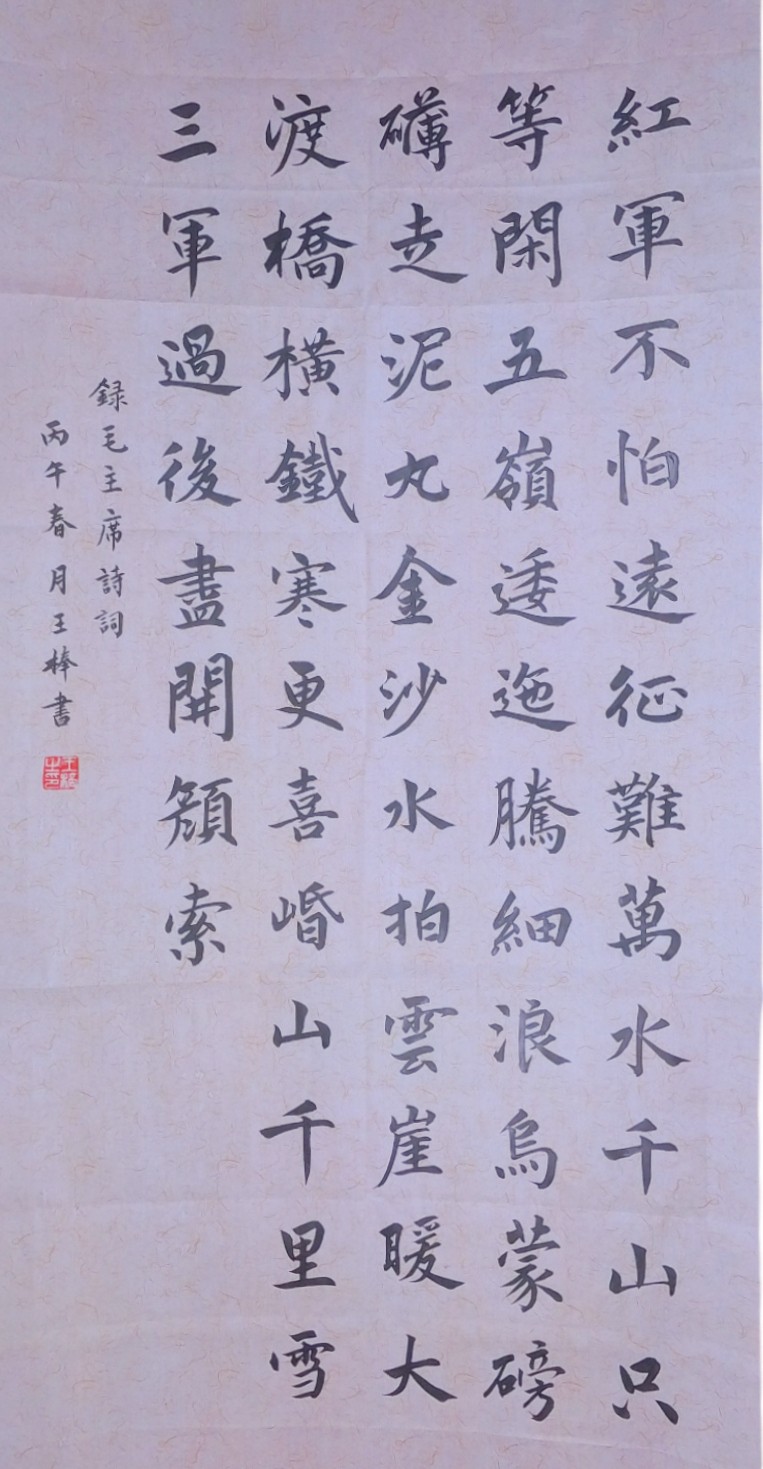 紅軍不怕遠征難萬水千山只
等閑五嶺逶迤騰細浪烏蒙磅
礴走泥丸金沙水拍雲崖暖大
渡橋橫鐵寒更喜崏山千里雪
三軍過後盡開顔索
録毛主席詩詞
丙午春月王棒書